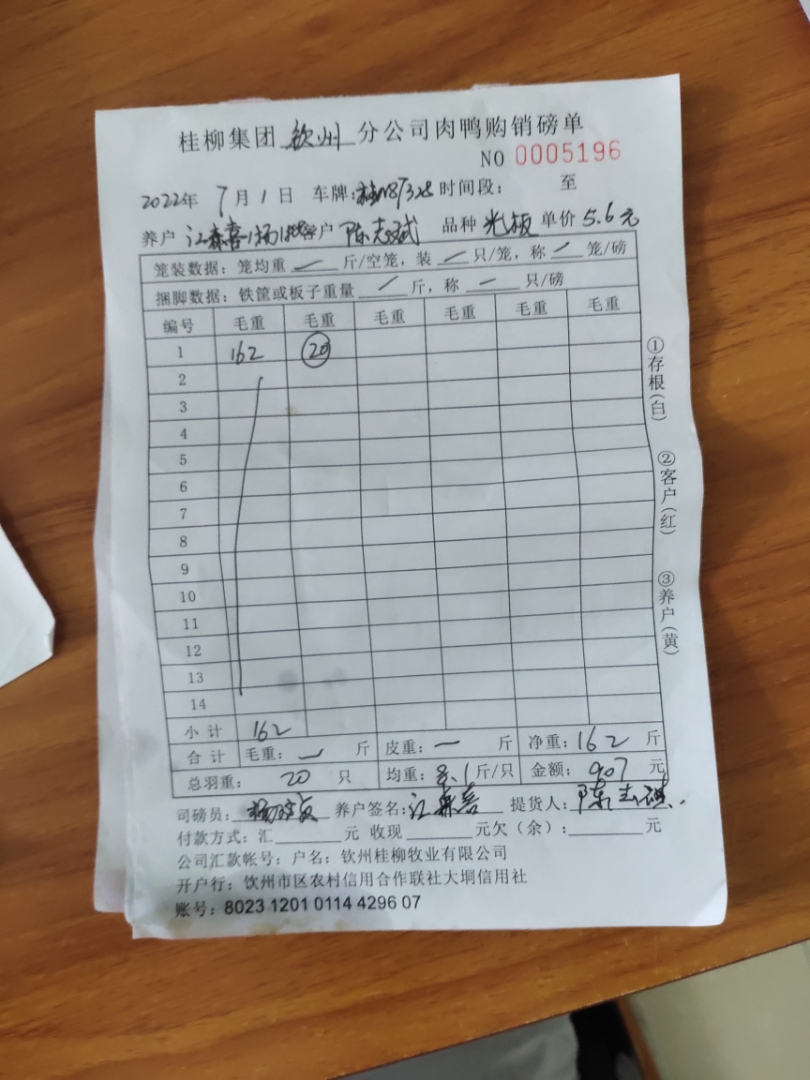 桂柳集团 钦州 分公司肉鸭购销磅单
NO 0005196
2022年 7月1日 车牌: 时间段: 至
养户 江森喜 客户 陈志斌 品种 光板 单价 5.6元
笼装数据：笼均重 — 斤/空笼，装 — 只/笼，称 — 笼/磅
捆脚数据：铁筐或板子重量 — 斤，称 — 只/磅
编号 毛重 毛重 毛重 毛重 毛重 毛重
1 162 20
2
3
4
5
6
7
8
9
10
11
12
13
14
小计 162
合计 毛重：— 斤 皮重：— 斤 净重：162 斤
总羽重： 20 只 均重：8.1斤/只 金额：907 元
司磅员： 养户签名：江森喜 提货人：陈志斌
付款方式：汇 元 收现 元欠（余）： 元
公司汇款帐号：户名：钦州桂柳牧业有限公司
开户行：钦州市区农村信用合作联社大垌信用社
账号：8023 1201 0114 4296 07
①存根(白)
②客户(红)
③养户(黄)